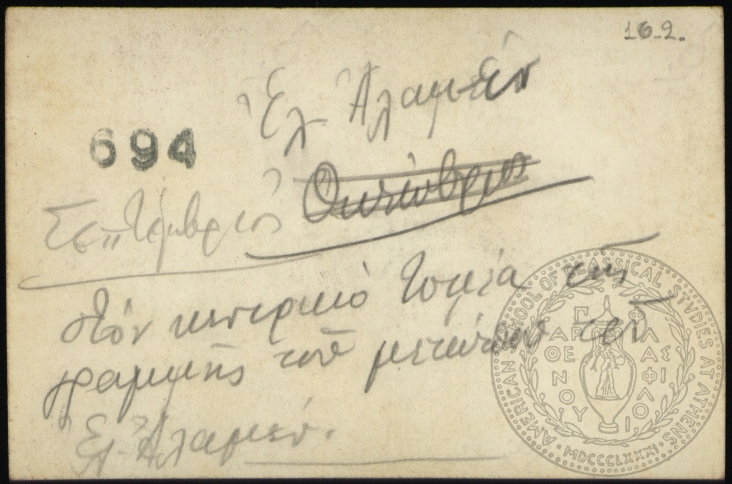 16.2.
Ἐλ Ἀλαμέιν
694
Σεπτέμβριος Ὀκτώβριος
στὸν κεντρικὸ τομέα τῆς
γραμμῆς τοῦ μετώπου τοῦ
Ἐλ-Ἀλαμέιν.
AMERICAN SCHOOL OF CLASSICAL STUDIES AT ATHENS
ΠΑΡΘΕΝΟΥ ΦΙΛΑΣ ΦΙΛΟΙ
MDCCCLXXXI